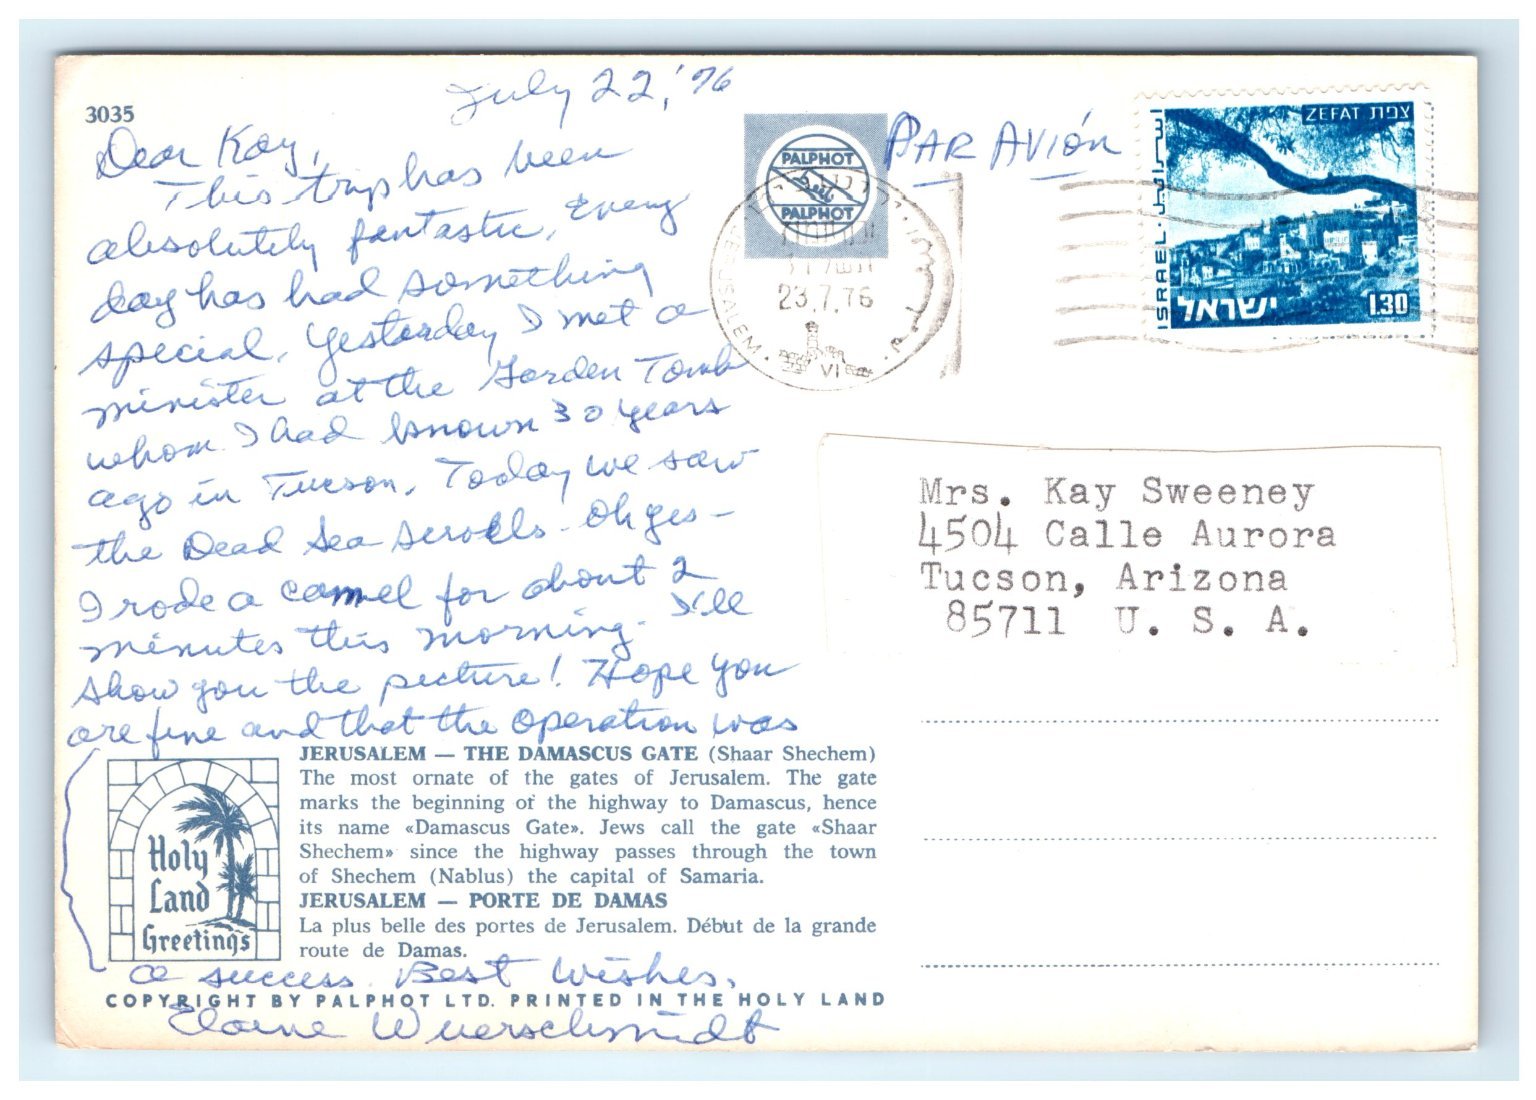 3035
July 22, '76
Dear Kay,
This trip has been
absolutely fantastic. Every
day has had something
special. Yesterday I met a
minister at the Garden Tomb
whom I had known 30 years
ago in Tucson. Today we saw
the Dead Sea Scrolls - Oh yes -
I rode a camel for about 2
minutes this morning. I'll
show you the picture! Hope you
are fine and that the operation was
a success. Best Wishes,
Elaine Wuerschmidt
JERUSALEM — THE DAMASCUS GATE (Shaar Shechem)
The most ornate of the gates of Jerusalem. The gate
marks the beginning of the highway to Damascus, hence
its name «Damascus Gate». Jews call the gate «Shaar
Shechem» since the highway passes through the town
of Shechem (Nablus) the capital of Samaria.
JERUSALEM — PORTE DE DAMAS
La plus belle des portes de Jerusalem. Début de la grande
route de Damas.
Holy
Land
Greetings
COPYRIGHT BY PALPHOT LTD. PRINTED IN THE HOLY LAND
PALPHOT
PALPHOT
PAR AVIÓN
JERUSALEM
23.7.76
VI
ZEFAT צפת
ISRAEL
ישראל
1.30
Mrs. Kay Sweeney
4504 Calle Aurora
Tucson, Arizona
85711 U. S. A.